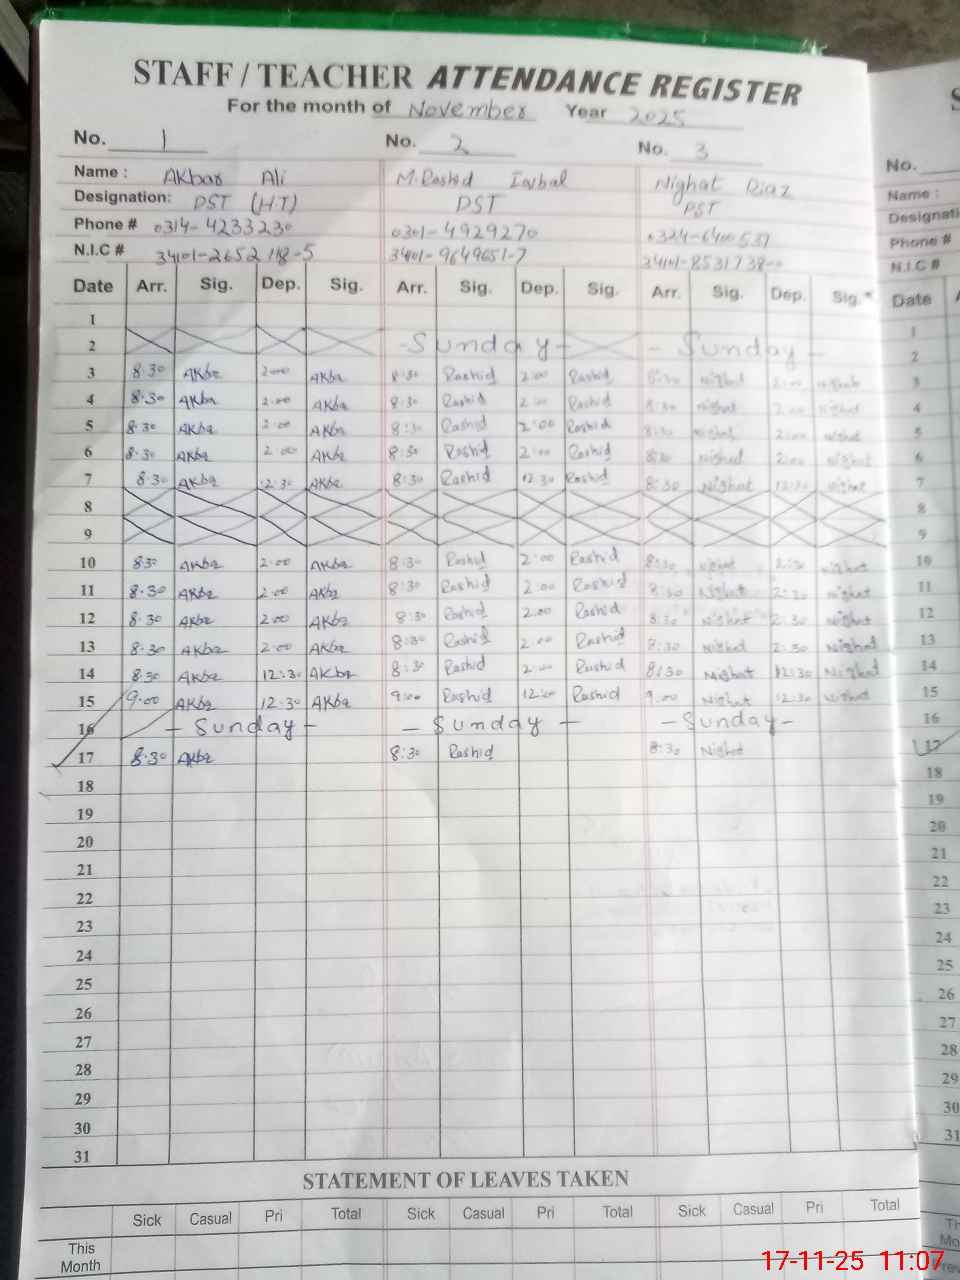 STAFF / TEACHER ATTENDANCE REGISTER
For the month of November Year 2025
No. 1 No. 2 No. 3
Name : Akbar Ali M.Rashid Iqbal Nighat Riaz
Designation: PST (H.T) PST PST
Phone # 0314-4233230 0301-4929270 0324-6400537
N.I.C # 34101-2652118-5 34101-9649651-7
Date Arr. Sig. Dep. Sig. Arr. Sig. Dep. Sig. Arr. Sig. Dep. Sig.
1
2 - Sunday - - Sunday -
3 8:30 AKba 2:00 AKba 8:30 Rashid 2:00 Rashid 8:30 Nighat 2:00 Nighat
4 8:30 AKba 2:00 AKba 8:30 Rashid 2:00 Rashid 8:30 Nighat 2:00 Nighat
5 8:30 AKba 2:00 AKba 8:30 Rashid 2:00 Rashid 8:30 Nighat 2:00 Nighat
6 8:30 AKba 2:00 AKba 8:30 Rashid 2:00 Rashid 8:30 Nighat 2:00 Nighat
7 8:30 AKba 12:30 AKba 8:30 Rashid 12:30 Rashid 8:30 Nighat 12:30 Nighat
8
9
10 8:30 AKba 2:00 AKba 8:30 Rashid 2:00 Rashid 8:30 Nighat 2:30 Nighat
11 8:30 AKba 2:00 AKba 8:30 Rashid 2:00 Rashid 8:30 Nighat 2:30 Nighat
12 8:30 AKba 2:00 AKba 8:30 Rashid 2:00 Rashid 8:30 Nighat 2:30 Nighat
13 8:30 AKba 2:00 AKba 8:30 Rashid 2:00 Rashid 8:30 Nighat 2:30 Nighat
14 8:30 AKba 12:30 AKba 8:30 Rashid 2:00 Rashid 8:30 Nighat 12:30 Nighat
15 9:00 AKba 12:30 AKba 9:00 Rashid 12:00 Rashid 9:00 Nighat 12:30 Nighat
16 - Sunday - - Sunday - - Sunday -
17 8:30 AKba 8:30 Rashid 8:30 Nighat
18
19
20
21
22
23
24
25
26
27
28
29
30
31
STATEMENT OF LEAVES TAKEN
Sick Casual Pri Total Sick Casual Pri Total Sick Casual Pri Total
This Month
No.
Name :
Phone #
N.I.C #
Date
1
2
3
4
5
6
7
8
9
10
11
12
13
14
15
16
17
18
19
20
21
22
23
24
25
26
27
28
29
30
31
17-11-25 11:07